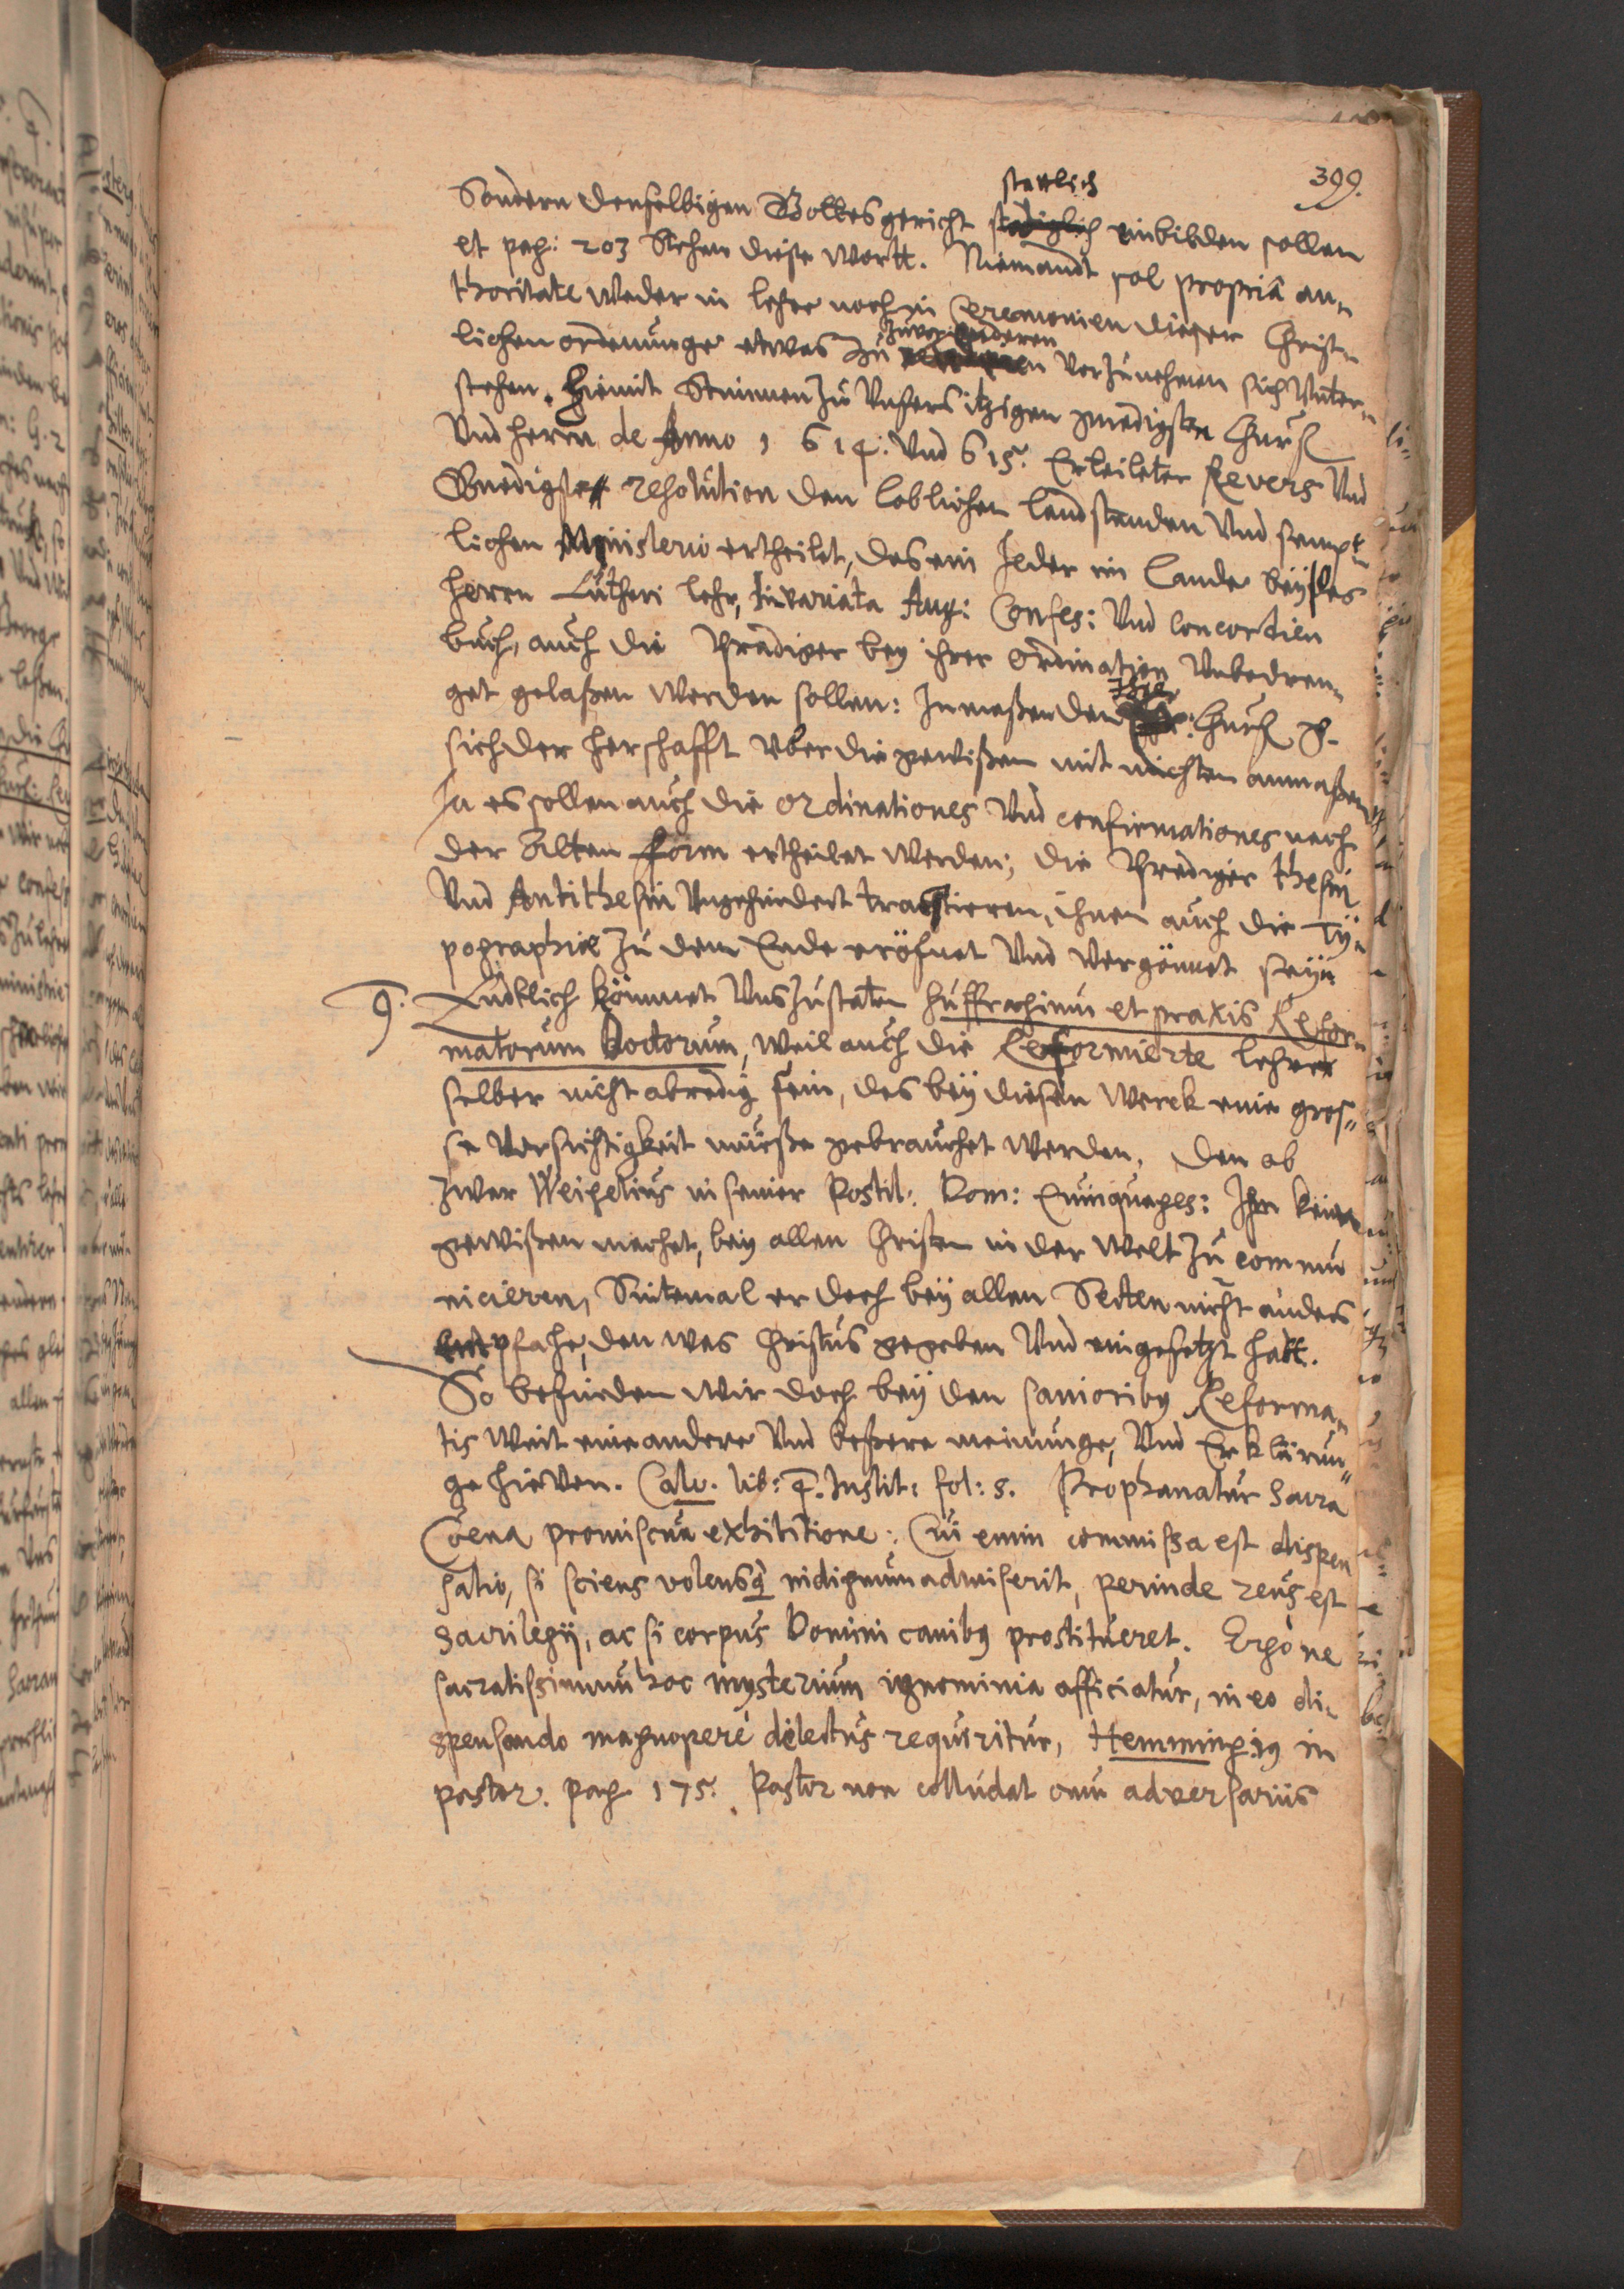 399.
stattlich
Sondern denselbigen Gottes gericht stadiglich einbilden sollen
et pag: 203 Stehen diese wortt. Niemandt sol propriâ au„
thoritate weder in lehr noch in Ceremonien dieser Christ„
zuver enderen
lichen ordenunge etwas zu vorzunehmen sich unter„
stehen. Hiemit Stimmen zu unsers itzigen gnedigsten Churf
und herrn de Anno 1614. und 615. Erteileter Revers und
Gnedigste resolution den loblichen landstenden und sempt„
lichen Ministerio ertheilet, das ein Jeder im Lande beÿ des
herrn Lutheri lehr, Invariata Aug: Confes: und Concordien
buch, auch die Prediger bey ihrer Ordination unbedren„
get gelaßen werden sollen: Inmaßen den Ihre Churf g.
sich der herschafft uber die gewißen mit nichten anmaßen
Ja es sollen auch die ordinationes und confirmationes nach
der Alten form ertheilet werden; die Prediger thesin
und Antithesin ungehindert tractieren, ihnen auch die Tÿ„
pographiæ zu dem Ende eröfnet und vergönnet seÿn
9. Endtlich kömmet uns zustaten suffragium et praxis Refor„
matorum Doctorum, weil auch die Reformierte lehrer
selber nicht abredig sein, das beÿ diesen werck eine gros„
se Versichtigkeit müeße gebrauchet werden. Den ob
zwar Weigelius in seiner Postil: Dom: Quinquages: Ihm kein
gewißen machet, beÿ allen Christen in der welt zu commu
nicieren, Sintemal er doch beÿ allen Secten nicht anders
entpfahe, den was Christus gegeben und eingesetzt hatt.
So befinden wir doch beÿ den sanioribus Reforma„
tis weit eine andere und beßere meinunge, und Erklärun„
ge hieven. Calv. lib: 4. Instit: fol: s. Prophanatur sacra
Coena promiscua exhibitione: Cui enim commissa est dispen
satio, si sciens volensq indignum admiserit, perinde reus est
sacrilegij, ac si corpus Domini canibus prostitueret. Ergò ne
sacratissimum hoc mysterium ignominia afficiatur, in eo di„
spensando magnoperè dilectus requiritur, Hemmingius in
pastor. pag 175. Pastor non colludat cum adversariis